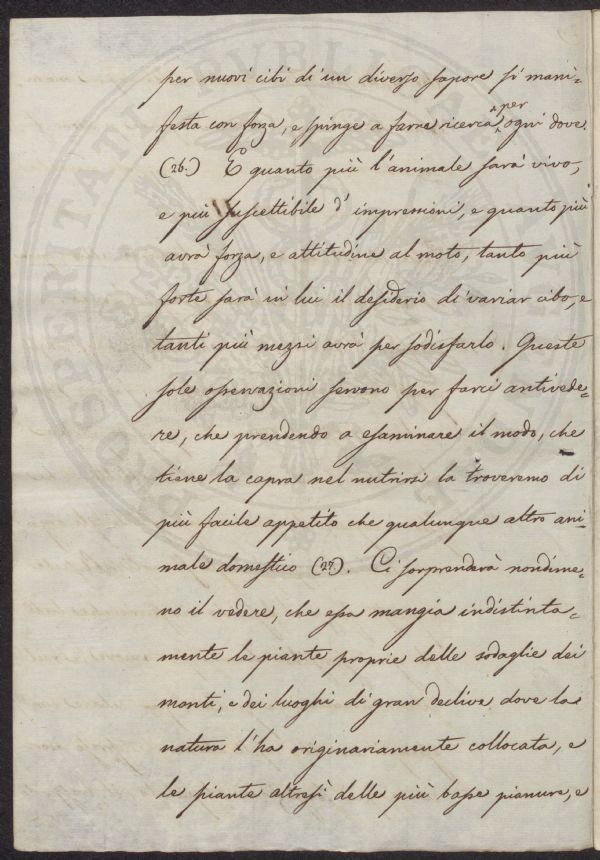 per nuovi cibi di un diverso sapore si mani=
festa con forza, e spinge a farne ricerca per ogni dove
(26.) E quanto più l'animale sarà vivo,
e più suscettibile d'impressioni, e quanto più
avrà forza, e attitudine al moto, tanto più
forte sarà in lui il desiderio di variar cibo, e
tanti più mezzi avrà per sodisfarlo. Queste
sole osservazioni servono per farci antivede=
re, che prendendo a esaminare il modo, che
tiene la capra nel nutrirsi la troveremo di
più facile appetito che qualunque altro ani=
male domestico (27). Ci sorprenderà nondime=
no il vedere, che essa mangia indistinta=
mente le piante proprie delle sodaglie dei
monti, e dei luoghi di gran declive dove la
natura l'ha originariamente collocata, e
le piante altresì delle più basse pianure, e